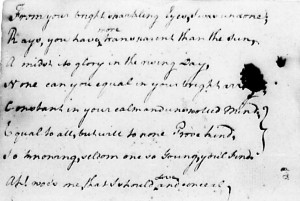 From your bright sparkling Eyes, I was undone;
Rays, you have more transparent than the sun,
A midst its glory in the rising Day,
None can you equal in your bright
Constant in your calm and unspotted Mind;
Equal to all, but will to none Prove kind,
So knowing, seldom one so Young, you'l Find
Ah! woe's me, that I should Love and conceal,